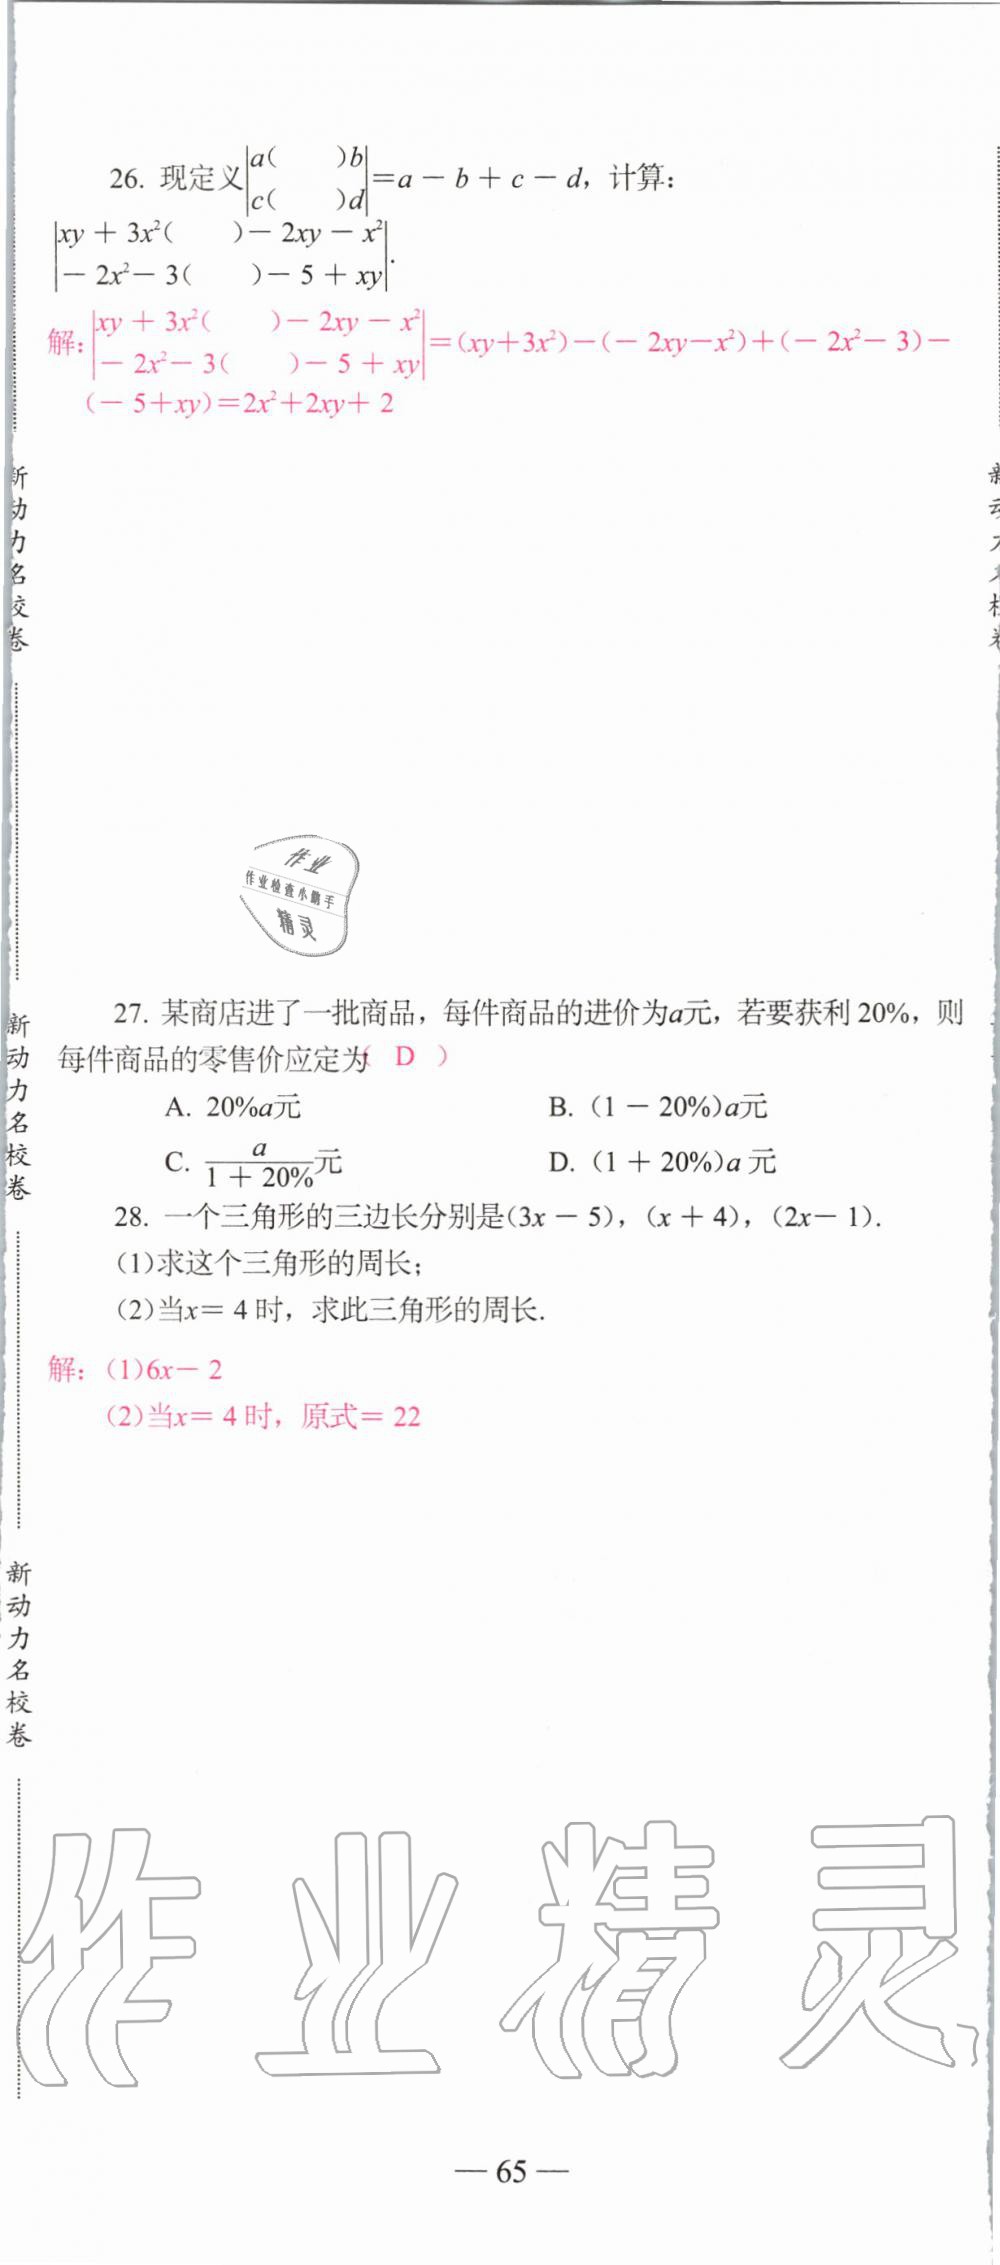 26. 现定义|a(  )b|
|c(  )d|=a－b＋c－d，计算：
|xy＋3x²(  )－2xy－x²|
|－2x²－3(  )－5＋xy|.
解：|xy＋3x²(  )－2xy－x²|
|－2x²－3(  )－5＋xy|=(xy+3x²)－(－2xy－x²)+(－2x²－3)－
(－5+xy)=2x²+2xy+2
作业
作业检查小助手
精灵
27. 某商店进了一批商品，每件商品的进价为a元，若要获利20%，则
每件商品的零售价应定为( D )
A. 20%a元 B. (1－20%)a元
C. a/(1＋20%)元 D. (1＋20%)a元
28. 一个三角形的三边长分别是(3x－5)，(x＋4)，(2x－1).
(1)求这个三角形的周长；
(2)当x=4时，求此三角形的周长.
解：(1)6x－2
(2)当x=4时，原式=22
新动力名校卷
新动力名校卷
新动力名校卷
作业精灵
— 65 —